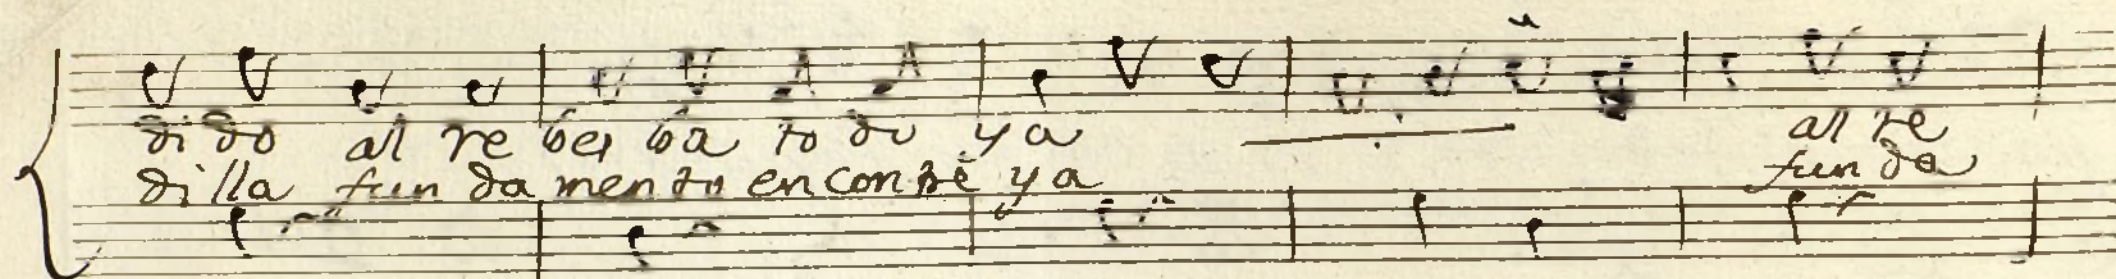 di do al re bes ba to do ya al re
di lla fun da men to en con tré ya fun da